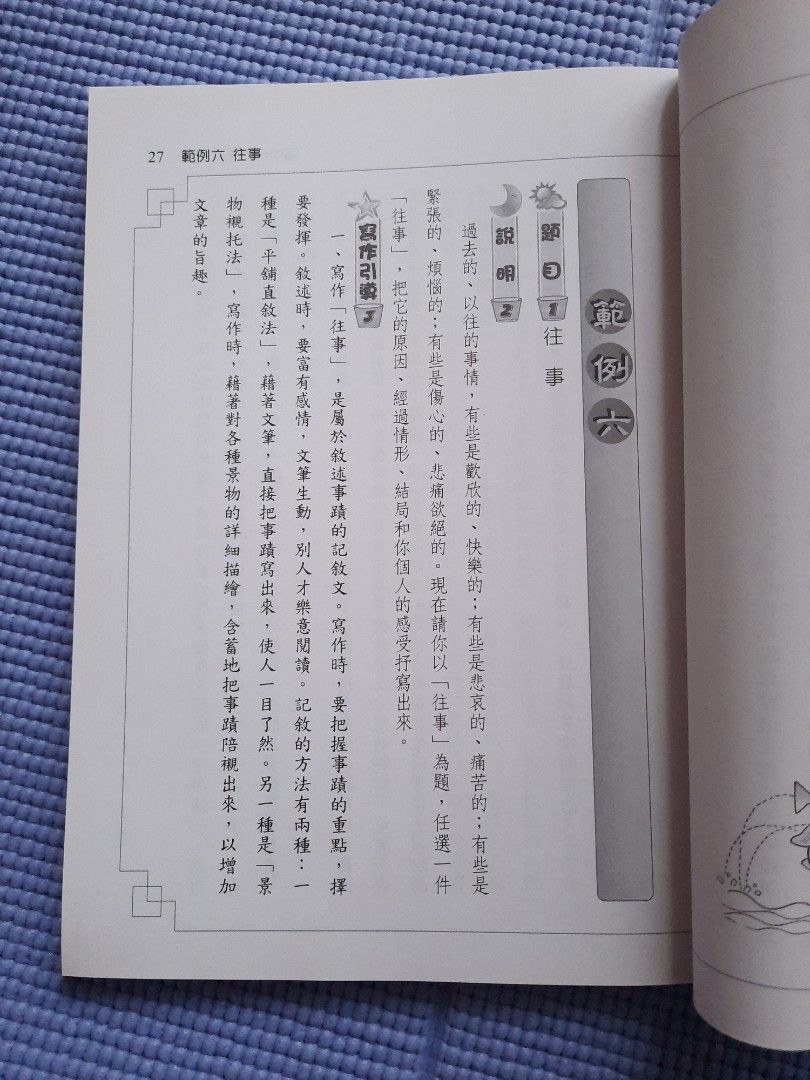 27 範例六 往事
範例六
題目1
往事
說明2
過去的、以往的事情，有些是歡欣的、快樂的；有些是悲哀的、痛苦的；有些是
緊張的、煩惱的；有些是傷心的、悲痛欲絕的。現在請你以「往事」為題，任選一件
「往事」，把它的原因、經過情形、結局和你個人的感受抒寫出來。
寫作引導3
一、寫作「往事」，是屬於敘述事蹟的記敘文。寫作時，要把握事蹟的重點，擇
要發揮。敘述時，要富有感情，文筆生動，別人才樂意閱讀。記敘的方法有兩種：一
種是「平舖直敘法」，藉著文筆，直接把事蹟寫出來，使人一目了然。另一種是「景
物襯托法」，寫作時，藉著對各種景物的詳細描繪，含蓄地把事蹟陪襯出來，以增加
文章的旨趣。